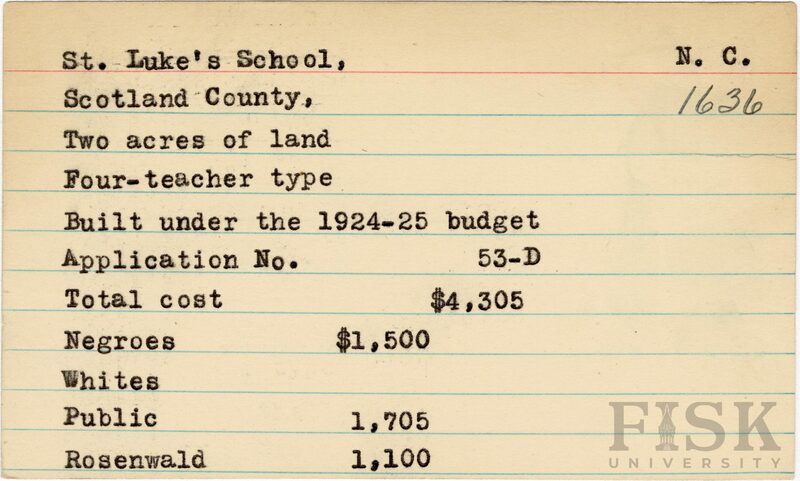 St. Luke's School, N. C.
Scotland County, 1636
Two acres of land
Four-teacher type
Built under the 1924-25 budget
Application No. 53-D
Total cost $4,305
Negroes $1,500
Whites
Public 1,705
Rosenwald 1,100
FISK
UNIVERSITY